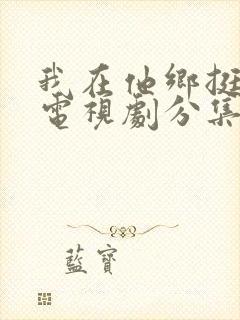 我在他鄉挺
電視劇分集
藍寶